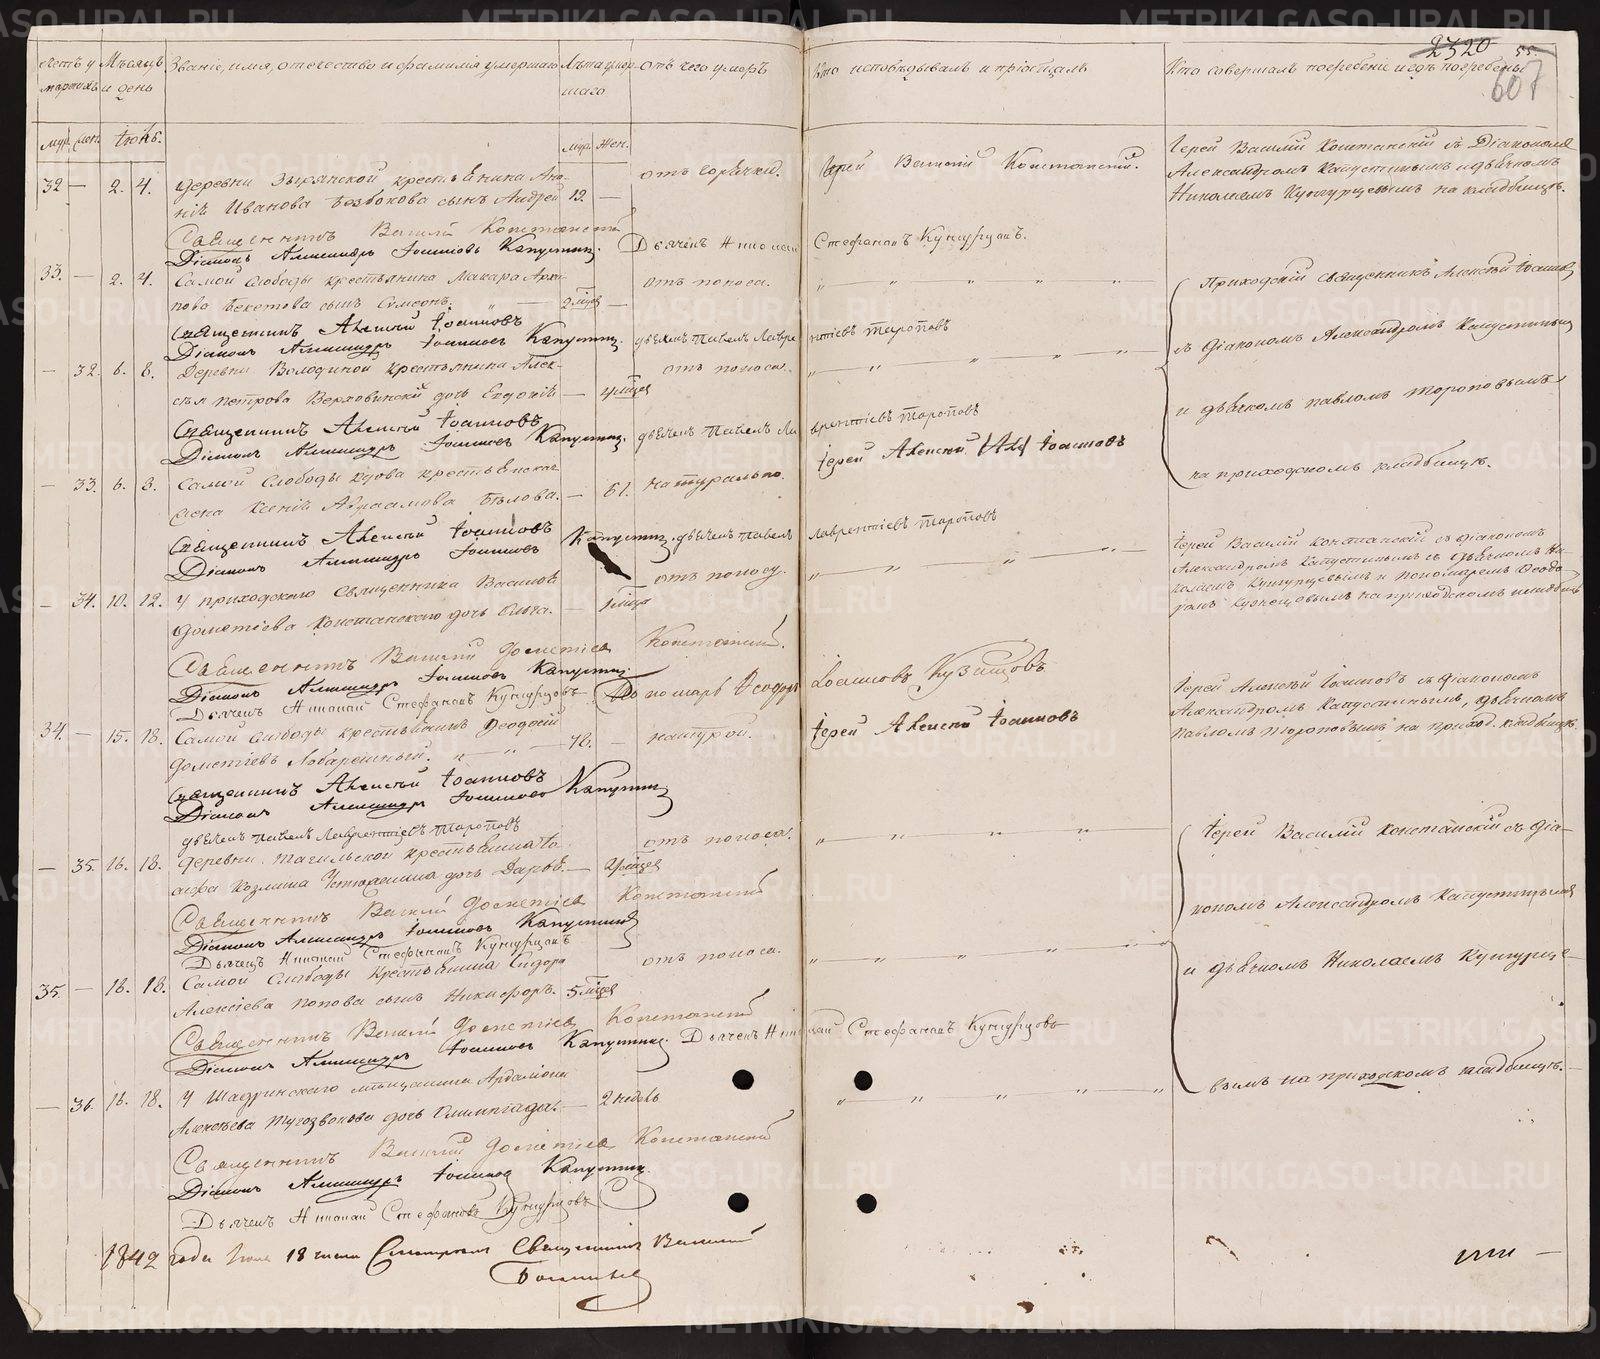 METRIKI.GASO-URAL.RU
2320 55.
607
Мѣсяцъ и день
Званіе, имя, отечество и фамилія умершаго
Лѣта умершаго
отъ чего умеръ
Кто исповѣдывалъ и пріобщалъ
Кто совершалъ погребеніе и гдѣ погребены
муж. жен.
Іюнь.
муж. Жен.
32 — 2. 4. Деревни Зырянской крестьянина
Иванова сынъ Андрей 13. —
отъ горячки.
Іерей Василій Констанскій.
Іерей Василій Констанскій съ Діакономъ
Александромъ Капустинымъ и дьячкомъ
Николаемъ Кунгурцевымъ на кладбищѣ.
Священникъ Василій Констанскій
Діаконъ Александръ Іоанновъ Капустинъ.
Дьячекъ Николай Стефановъ Кунгурцовъ.
33. — 2. 4. Самой слободы крестьянина Макара Архи-
пова Бекетова сынъ Симеонъ. 2 мѣся —
отъ поноса.
Приходскій священникъ Алексѣй Іоанновъ
съ діакономъ Александромъ Капустинымъ
и дьячкомъ Павломъ Тороповымъ
на приходскомъ кладбищѣ.
Священникъ Алексѣй Іоанновъ
Діаконъ Александръ Іоанновъ Капустинъ.
дьячекъ Павелъ Лаврентіевъ Тороповъ
— 32. 6. 8. Деревни Володиной крестьянина Алек-
сѣя Петрова Верховинскій дочь Евдокія — 4 мѣсяц
отъ поноса.
Священникъ Алексѣй Іоанновъ
Діаконъ Александръ Іоанновъ Капустинъ.
дьячекъ Павелъ Лаврентіевъ Тороповъ
— 33. 6. 8. Самой Слободы вдова крестьянская
жена Ксенія Авраамова Бѣлова. — 61.
натурально.
Іерей Алексѣй Іоанновъ
Священникъ Алексѣй Іоанновъ
Діаконъ Александръ Іоанновъ Капустинъ.
дьячекъ Павелъ Лаврентіевъ Тороповъ
— 34. 10. 12. У приходскаго Священника Василія
Дометіева Констанскаго дочь Ольга. — 1 мѣсяц
отъ поносу.
Іерей Василій Констанскій съ діакономъ
Александромъ Капустинымъ съ дьячкомъ Ни-
колаемъ Кунгурцевымъ и Пономаремъ Ѳеодо-
ромъ Кузнецовымъ на приходскомъ кладбищѣ
Священникъ Василій Дометіевъ Констанскій.
Діаконъ Александръ Іоанновъ Капустинъ
Дьячекъ Николай Стефановъ Кунгурцовъ
Пономарь Ѳеодоръ Іоанновъ Кузнецовъ
34. — 15. 18. Самой слободы крестьянинъ Ѳеодосій
Дометіевъ Лобарешный. — 78. —
натурой.
Іерей Алексѣй Іоанновъ
Іерей Алексѣй Іоанновъ съ діакономъ
Александромъ Капустинымъ, дьячкомъ
Павломъ Тороповымъ на приход. кладбищѣ.
Священникъ Алексѣй Іоанновъ
Діаконъ Александръ Іоанновъ Капустинъ
дьячекъ Павелъ Лаврентіевъ Тороповъ
— 35. 16. 18. Деревни Тагильской крестьянина
Козмина Устюжанина дочь Дарья. — мѣсяц
отъ поноса.
Іерей Василій Констанскій съ діа-
кономъ Александромъ Капустинымъ
и дьячкомъ Николаемъ Кунгурце-
вымъ на приходскомъ кладбищѣ.
Священникъ Василій Дометіевъ Констанскій
Діаконъ Александръ Іоанновъ Капустинъ
Дьячецъ Николай Стефановъ Кунгурцовъ
35. — 16. 18. Самой Слободы крестьянина Сидора
Алексіева Попова сынъ Никифоръ. 5 мѣсяц
отъ поноса.
Священникъ Василій Дометіевъ Констанскій
Діаконъ Александръ Іоанновъ Капустинъ.
Дьячекъ Николай Стефановъ Кунгурцовъ
— 36. 16. 18. У Шадринскаго мѣщанина Ардаліона
Алексѣева Тугозвонова дочь Олимпіада. — 2 недѣль
Священникъ Василій Дометіевъ Констанскій
Діаконъ Александръ Іоанновъ Капустинъ.
Дьячекъ Николай Стефановъ Кунгурцовъ
1842 года Іюня 18 числа Смотрѣлъ Священникъ Василій